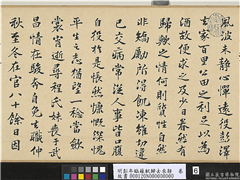 風波未靜心憚遠役彭澤
去家百里公田之利足以為
酒故便求之及少日眷然有
歸歟之情何則質性自然
非矯勵所得飢凍雖切違
己交病嘗從人事皆口腹
自役於是悵然慷慨深愧
平生之志猶望一稔當斂
裳宵逝尋程氏妹喪于武
昌情在駿奔自免去職仲
秋至冬在官八十餘日因